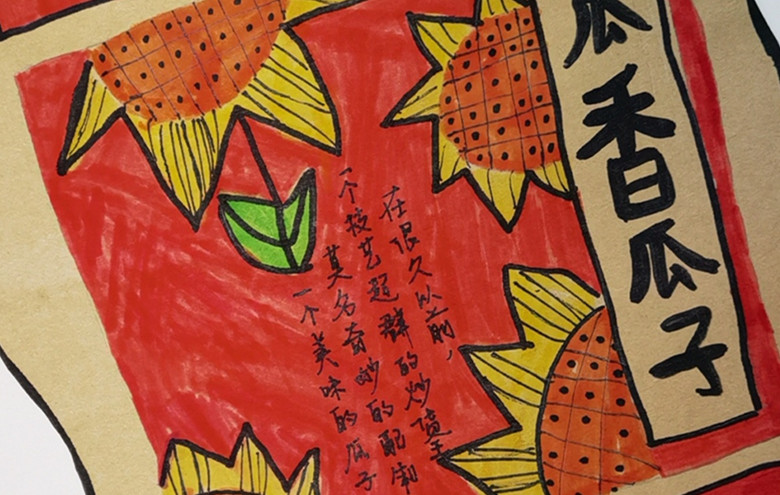 瓜香瓜子
在很久以前，
一个技艺超群的炒货王
莫名奇妙的配制
一个美味的瓜子